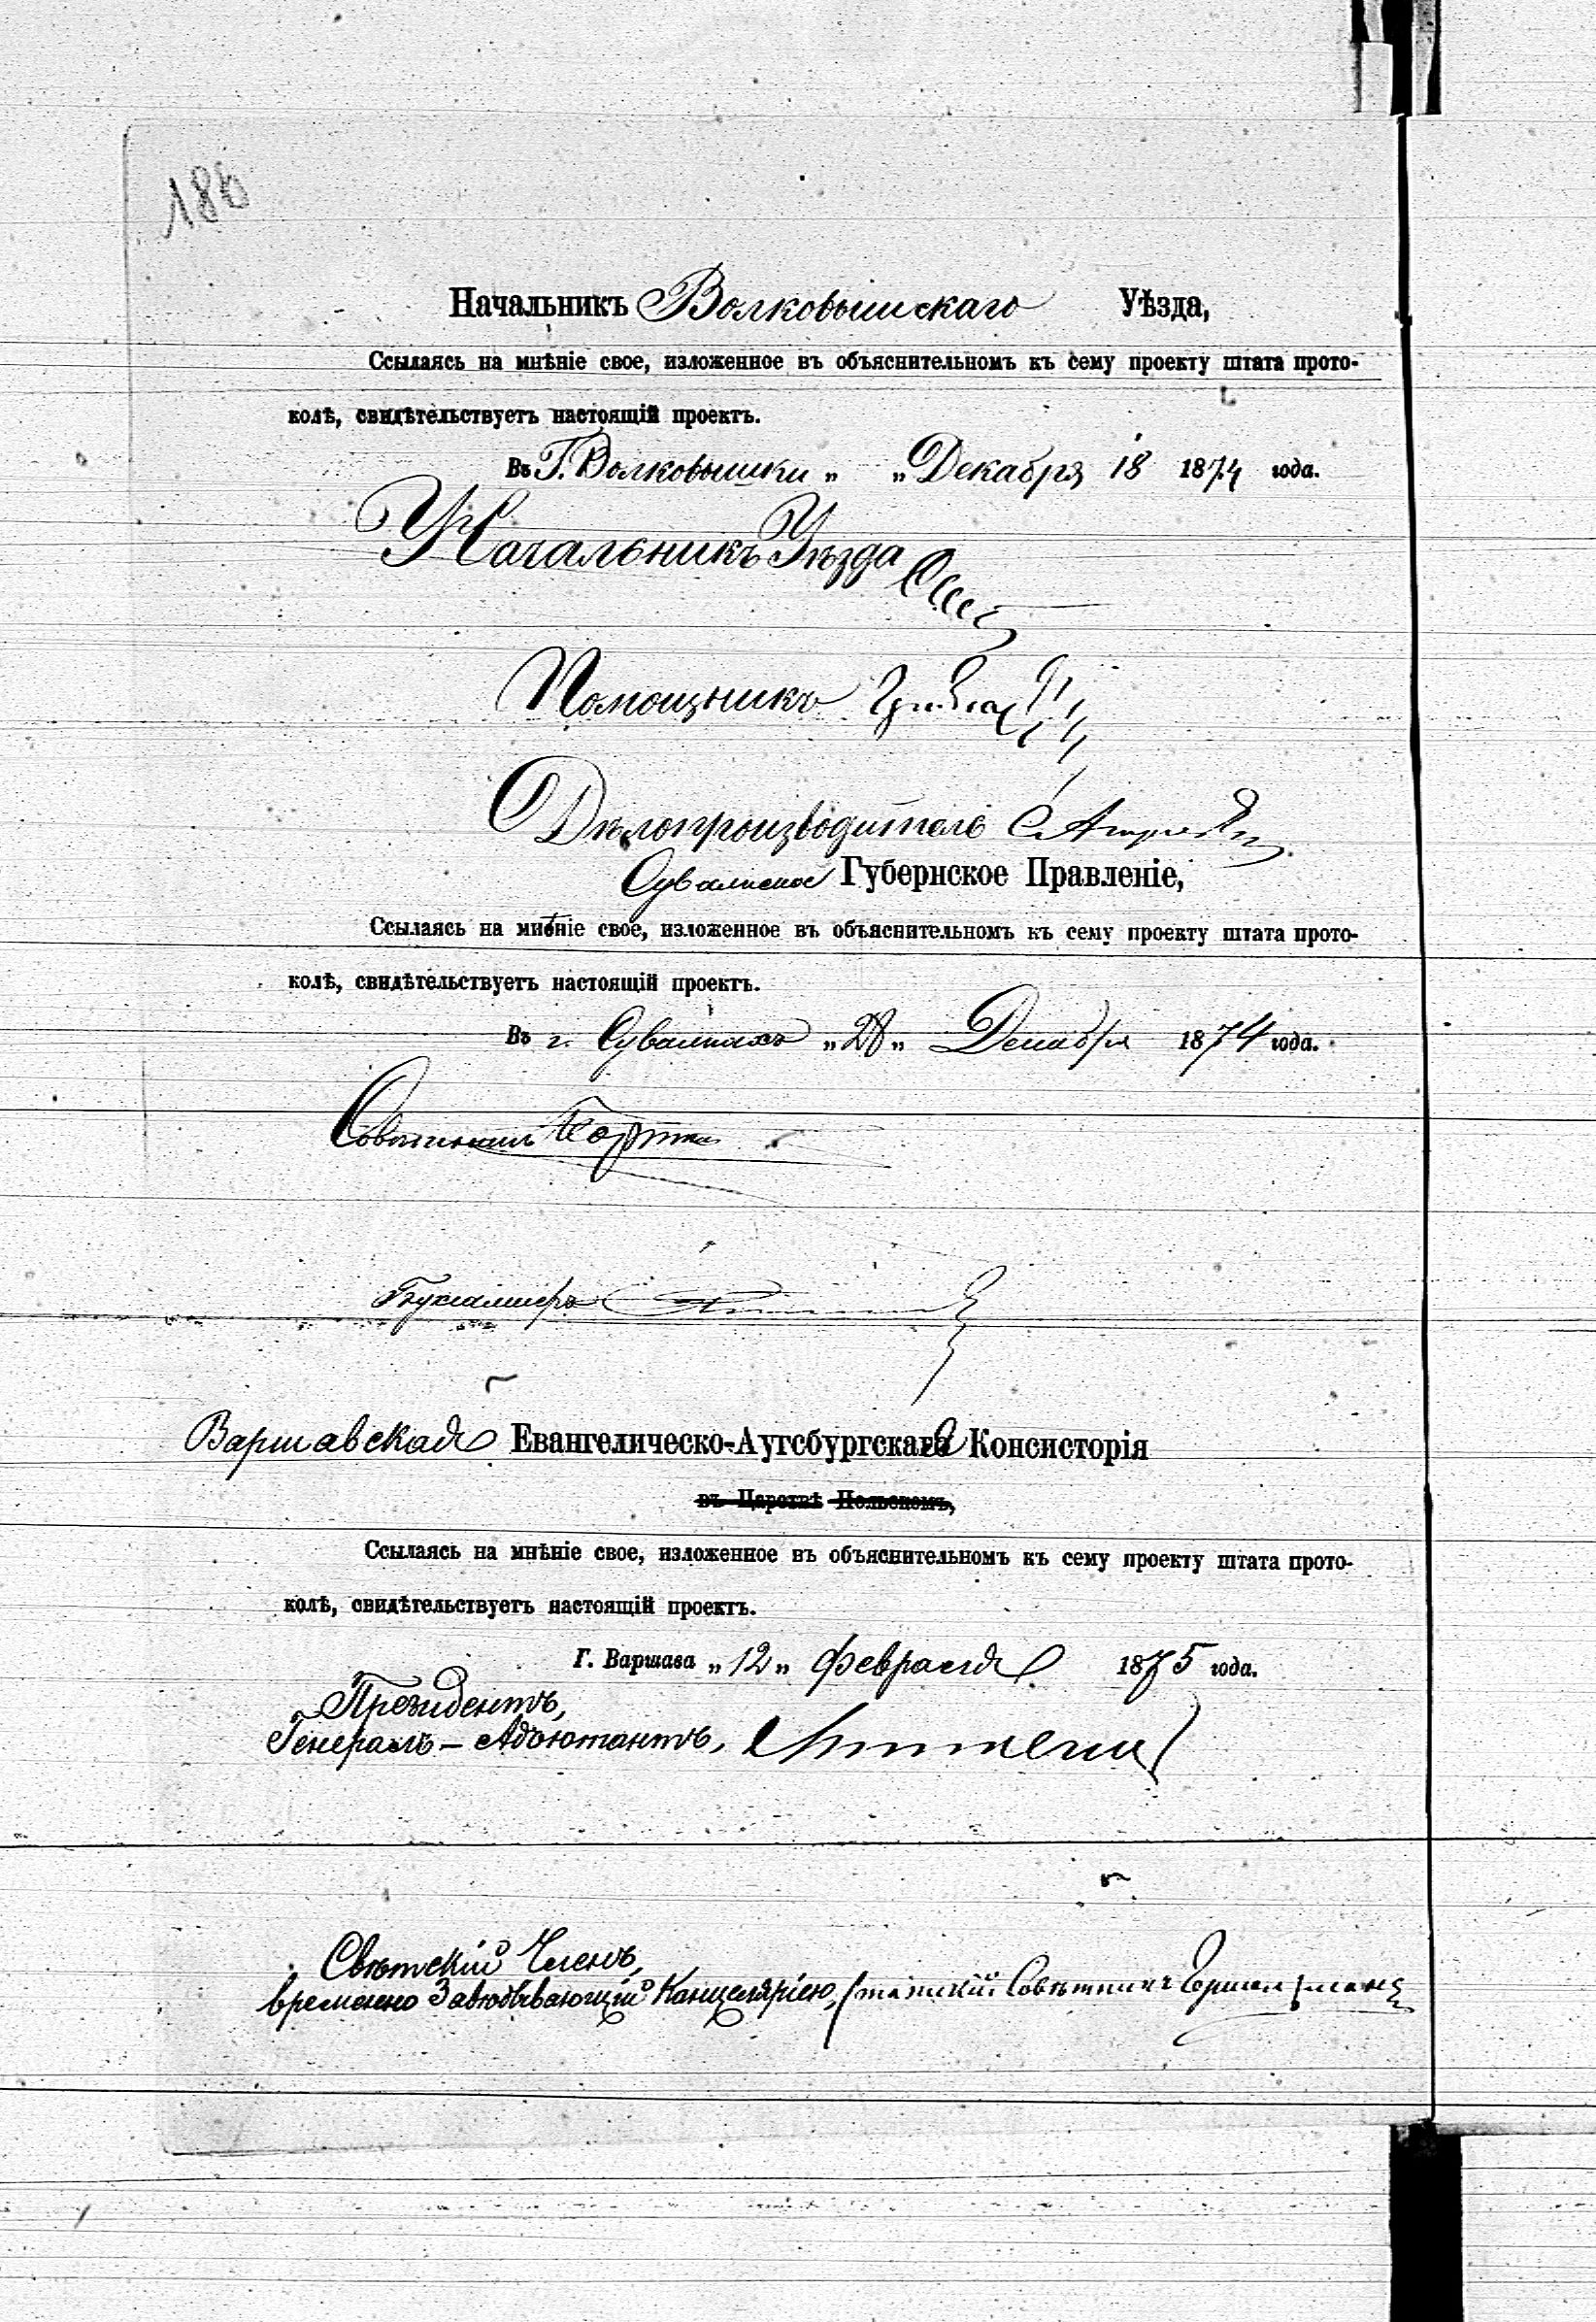 186
Начальникъ Волковышскаго Уѣзда,
Ссылаясь на мнѣніе свое, изложенное въ объяснительномъ къ сему проекту штата прото-
колѣ, свидѣтельствуетъ настоящій проектъ.
Въ Г. Волковышки „ „ Декабря 18 1874 года.
Начальникъ Уѣзда
Помощникъ
Дѣлопроизводитель
Сувалкское Губернское Правленіе,
Ссылаясь на мнѣніе свое, изложенное въ объяснительномъ къ сему проекту штата прото-
колѣ, свидѣтельствуетъ настоящій проектъ.
Въ г. Сувалкахъ „28„ Декабря 1874 года.
Совѣтникъ
Бухгалтеръ
Варшавская Евангелическо-Аугсбургская Консисторія
въ Царствѣ Польскомъ,
Ссылаясь на мнѣніе свое, изложенное въ объяснительномъ къ сему проекту штата прото-
колѣ, свидѣтельствуетъ настоящій проектъ.
Г. Варшава „12„ Февраля 1875 года.
Президентъ,
Генералъ-Адъютантъ,
Свѣтскій Членъ,
временно Завѣдывающій Канцеляріею, Статскій Совѣтникъ